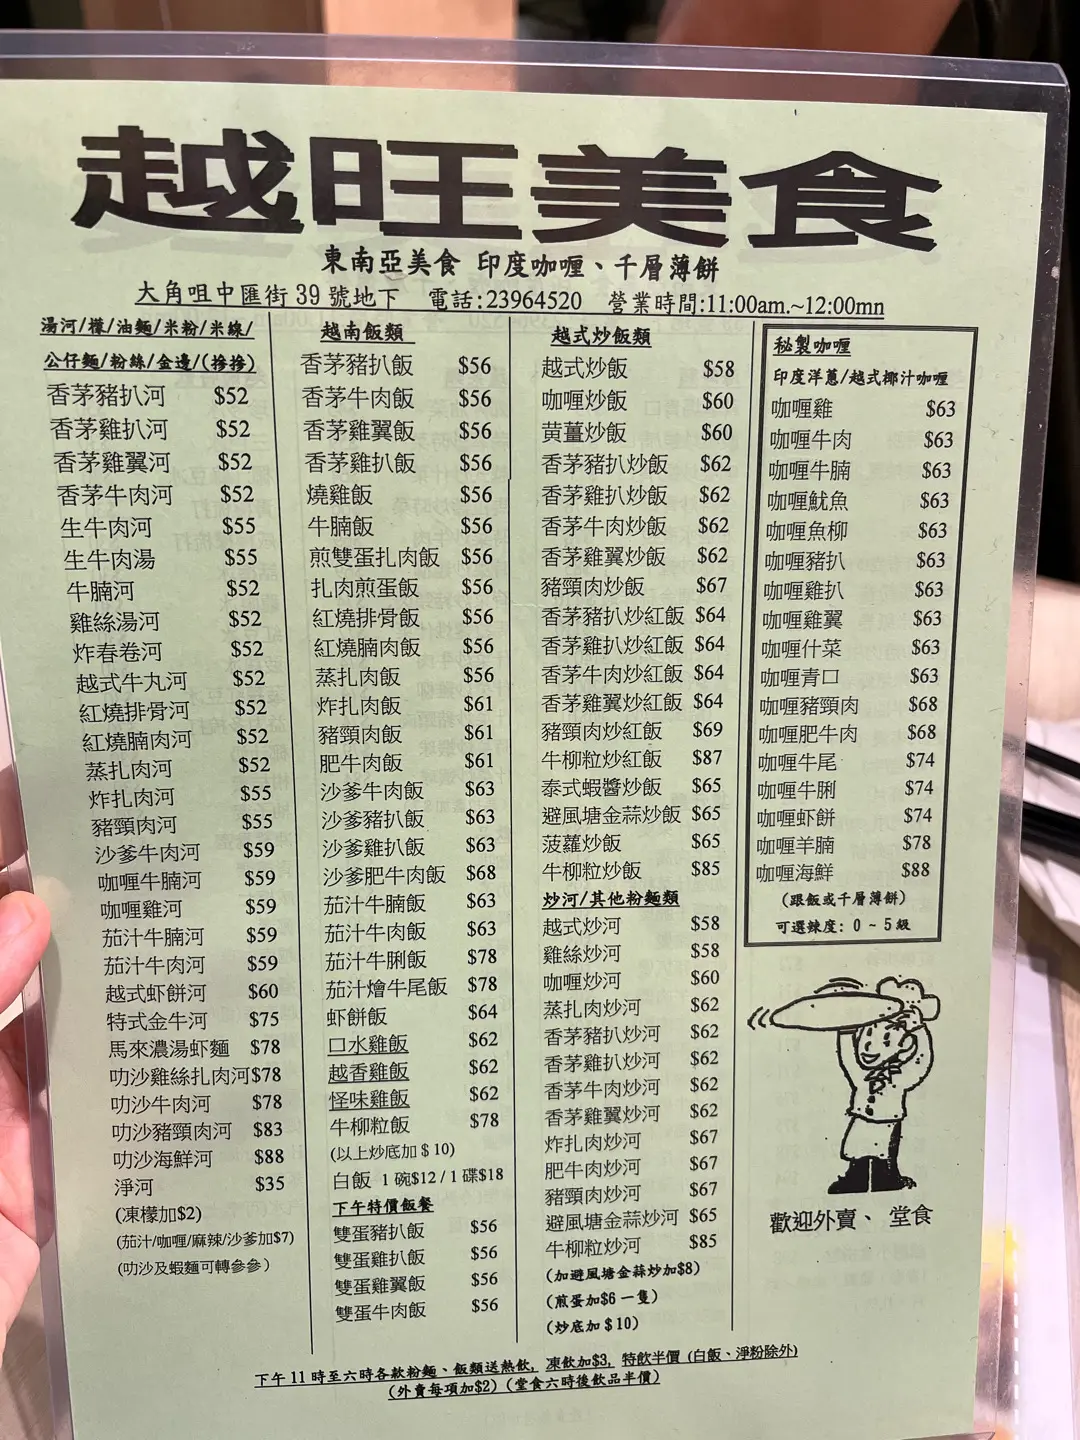 越旺美食
東南亞美食 印度咖喱、千層薄餅
大角咀中匯街 39 號地下 電話:23964520 營業時間:11:00am.~12:00mn
湯河/檬/油麵/米粉/米線/
公仔麵/粉絲/金邊/(掺掺)
香茅豬扒河 $52
香茅雞扒河 $52
香茅雞翼河 $52
香茅牛肉河 $52
生牛肉河 $55
生牛肉湯 $55
牛腩河 $52
雞絲湯河 $52
炸春卷河 $52
越式牛丸河 $52
紅燒排骨河 $52
紅燒腩肉河 $52
蒸扎肉河 $52
炸扎肉河 $55
豬頸肉河 $55
沙爹牛肉河 $59
咖喱牛腩河 $59
咖喱雞河 $59
茄汁牛腩河 $59
茄汁牛肉河 $59
越式虾餅河 $60
特式金牛河 $75
馬來濃湯虾麵 $78
叻沙雞絲扎肉河$78
叻沙牛肉河 $78
叻沙豬頸肉河 $83
叻沙海鮮河 $88
淨河 $35
(凍檬加$2)
(茄汁/咖喱/麻辣/沙爹加$7)
(叻沙及蝦麵可轉參參)
越南飯類
香茅豬扒飯 $56
香茅牛肉飯 $56
香茅雞翼飯 $56
香茅雞扒飯 $56
燒雞飯 $56
牛腩飯 $56
煎雙蛋扎肉飯 $56
扎肉煎蛋飯 $56
紅燒排骨飯 $56
紅燒腩肉飯 $56
蒸扎肉飯 $56
炸扎肉飯 $61
豬頸肉飯 $61
肥牛肉飯 $61
沙爹牛肉飯 $63
沙爹豬扒飯 $63
沙爹雞扒飯 $63
沙爹肥牛肉飯 $68
茄汁牛腩飯 $63
茄汁牛肉飯 $63
茄汁牛脷飯 $78
茄汁燴牛尾飯 $78
虾餅飯 $64
口水雞飯 $62
越香雞飯 $62
怪味雞飯 $62
牛柳粒飯 $78
(以上炒底加＄10)
白飯 1 碗$12 / 1 碟$18
下午特價飯餐
雙蛋豬扒飯 $56
雙蛋雞扒飯 $56
雙蛋雞翼飯 $56
雙蛋牛肉飯 $56
越式炒飯類
越式炒飯 $58
咖喱炒飯 $60
黄薑炒飯 $60
香茅豬扒炒飯 $62
香茅雞扒炒飯 $62
香茅牛肉炒飯 $62
香茅雞翼炒飯 $62
豬頸肉炒飯 $67
香茅豬扒炒紅飯 $64
香茅雞扒炒紅飯 $64
香茅牛肉炒紅飯 $64
香茅雞翼炒紅飯 $64
豬頸肉炒紅飯 $69
牛柳粒炒紅飯 $87
泰式蝦醬炒飯 $65
避風塘金蒜炒飯 $65
菠蘿炒飯 $65
牛柳粒炒飯 $85
炒河/其他粉麵類
越式炒河 $58
雞絲炒河 $58
咖喱炒河 $60
蒸扎肉炒河 $62
香茅豬扒炒河 $62
香茅雞扒炒河 $62
香茅牛肉炒河 $62
香茅雞翼炒河 $62
炸扎肉炒河 $67
肥牛肉炒河 $67
豬頸肉炒河 $67
避風塘金蒜炒河 $65
牛柳粒炒河 $85
(加避風塘金蒜炒加$8)
(煎蛋加$6 一隻)
(炒底加＄10)
秘製咖喱
印度洋蔥/越式椰汁咖喱
咖喱雞 $63
咖喱牛肉 $63
咖喱牛腩 $63
咖喱魷魚 $63
咖喱魚柳 $63
咖喱豬扒 $63
咖喱雞扒 $63
咖喱雞翼 $63
咖喱什菜 $63
咖喱青口 $63
咖喱豬頸肉 $68
咖喱肥牛肉 $68
咖喱牛尾 $74
咖喱牛脷 $74
咖喱虾餅 $74
咖喱羊腩 $78
咖喱海鮮 $88
(跟飯或千層薄餅)
可選辣度: 0 ~ 5 級
歡迎外賣、 堂食
下午 11 時至六時各款粉麵、飯類送熱飲, 凍飲加$3, 特飲半價 (白飯、淨粉除外)
(外賣每項加$2) (堂食六時後飲品半價)